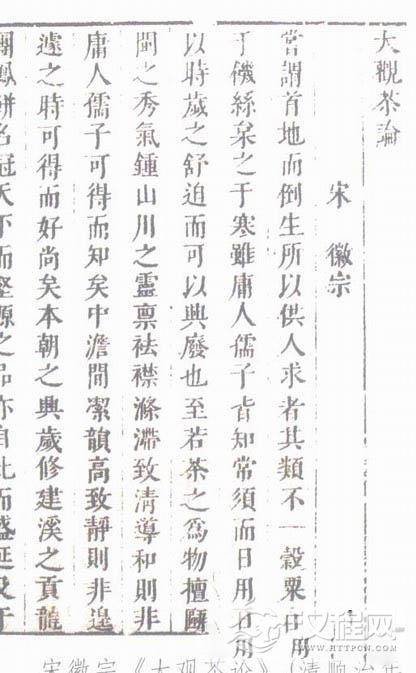 大觀茶論
宋 徽宗
嘗謂首地而倒生所以供人求者其類不一穀粟日用
于饑絲枲之于寒雖庸人儒子皆知常須而日用日用
以時歲之舒迫而可以興廢也至若茶之爲物擅甌
閩之秀氣鍾山川之靈禀祛襟滌滯致清導和則非
庸人儒子可得而知矣中澹間潔韻高致靜則非遑
遽之時可得而好尚矣本朝之興歲修建溪之貢龍
團鳳餅名冠天下而壑源之品亦自此而盛延及于
宋徽宗《大观茶论》(清顺治